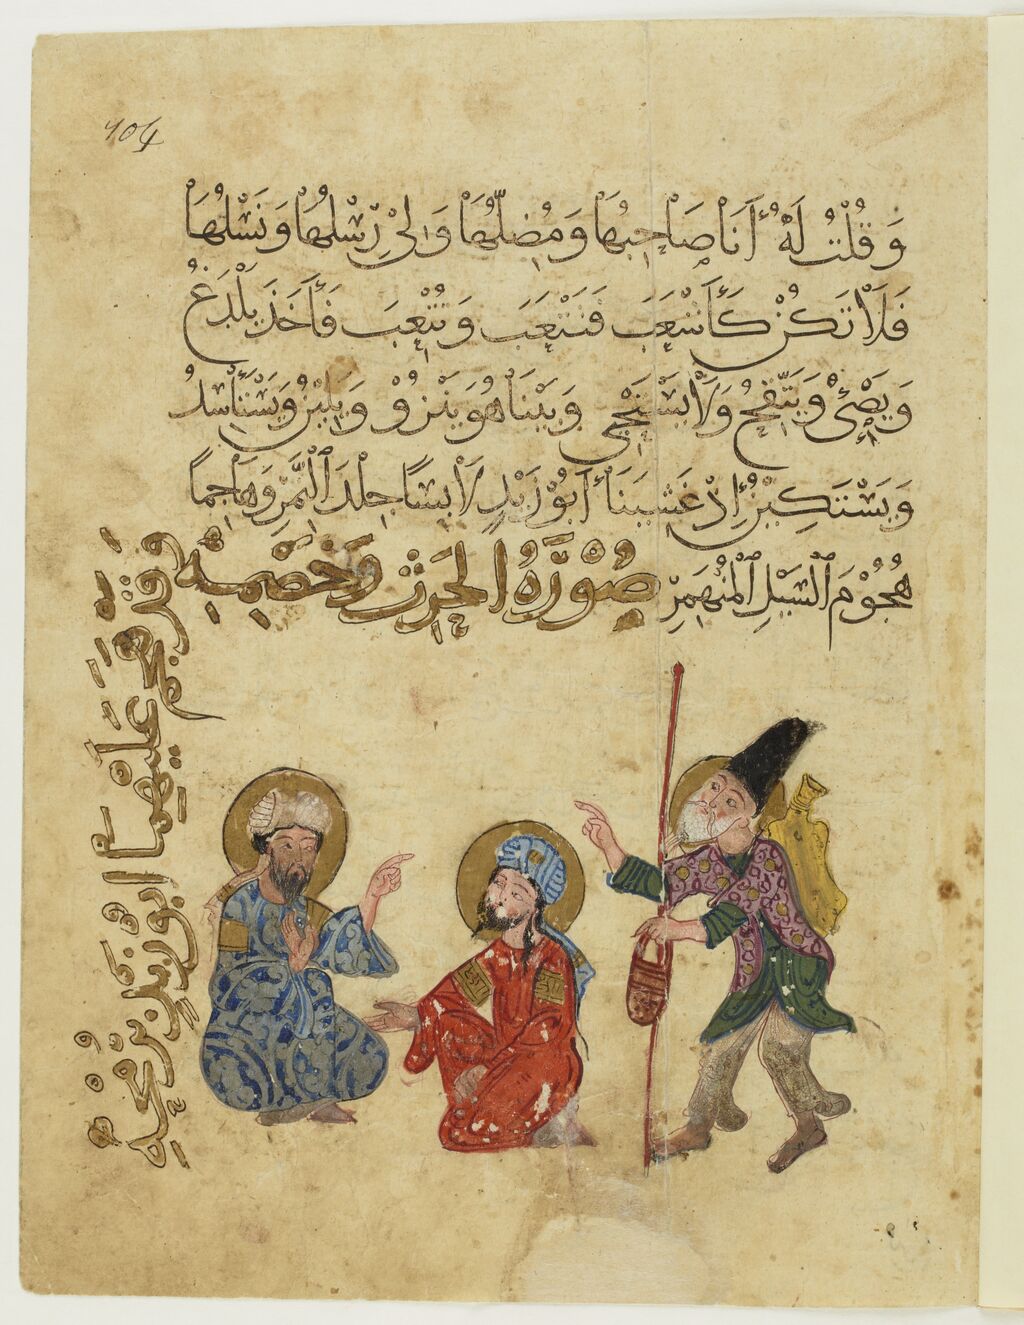 104
وَقُلْتُ لَهُ أَنَا صَاحِبُهَا وَمُضِلُّهَا وَإِلَيَّ رِسْلُهَا وَنَسْلُهَا
فَلَا تَكُنْ كَأَشْعَبَ فَتَتْعَبَ وَتُتْعِبَ فَأَخَذَ يَلْدَغُ
وَيَصْئَ وَيَتَّقِحُ وَلَا يَسْتَحْيِي وَبَيْنَا هُوَ يَنْزُوْ وَيَلِيْنُ وَيَسْتَأْسِدُ
وَيَسْتَكِيْنُ إِذْ غَشِيَنَا أَبُوْ زَيْدٍ لَابِسًا جِلْدَ النَّمِرِ وَهَاجِمًا
هُجُوْمَ السَّيْلِ الْمُنْهَمِرِ صُوْرَةُ الحرث وَخَصْمِهِ
وَقَدْ هَجَمَ عَلَيْهِمَا أَبُو زَيْدٍ